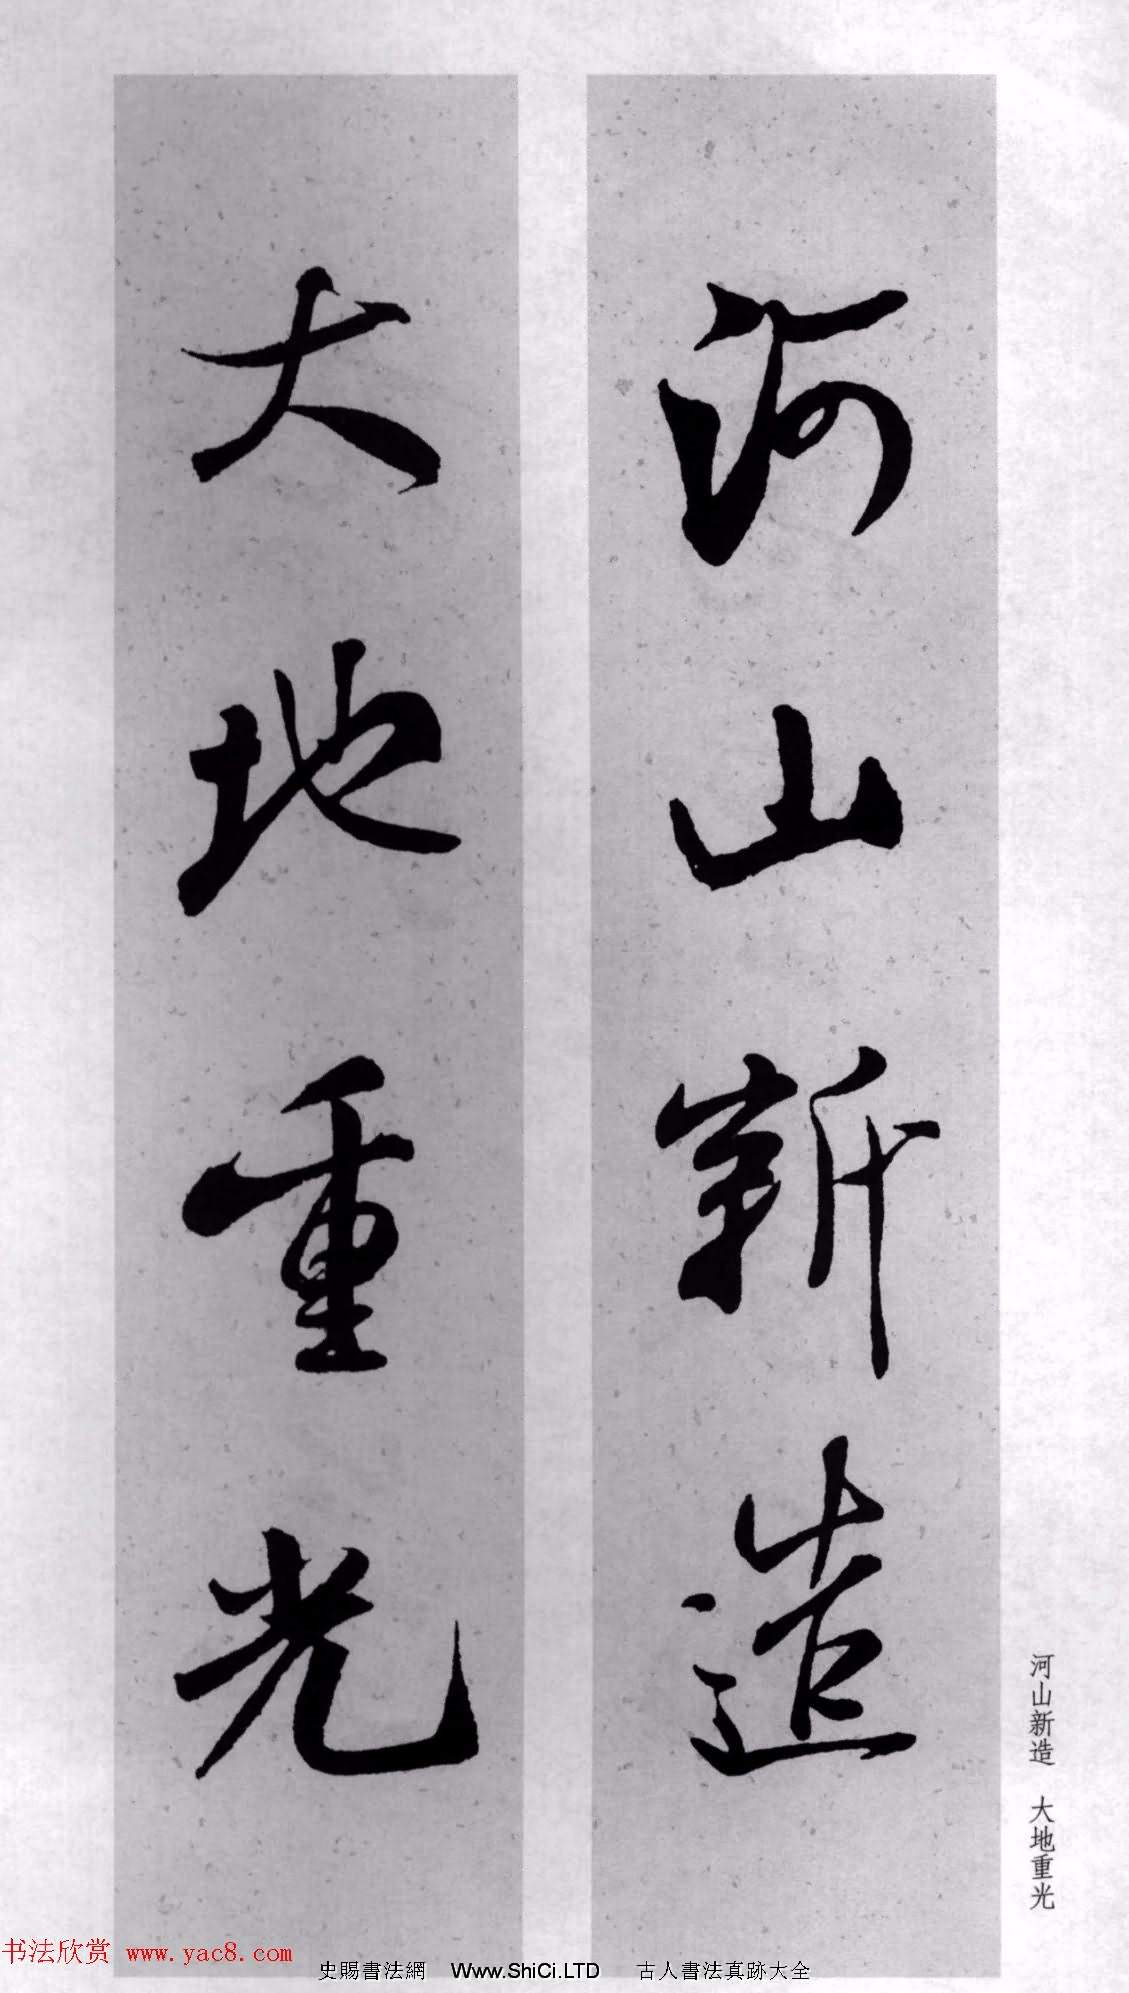 河山新造
大地重光
河山新造　大地重光
书法欣赏 www.yac8.com
史賜書法網 Www.ShiCi.LTD 古人書法真跡大全